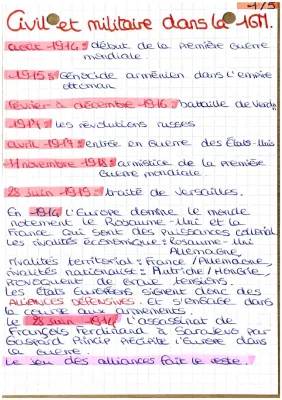 -1/5
Civil et militaire dans la 1GM.
août 1914 : début de la première guerre
mondiale.
1915 : Génocide arménien dans l'empire
ottoman
février à décembre 1916 bataille de Verdun
1917 les révolutions russes
avril 1917 : entrée en Guerre des États-Unis
11 novembre 1918 : armistice de la première
Guerre mondiale.
28 juin 1919 : traité de Versailles.
En 1914 l'Europe domine le monde
notement le Rosaume-Uni et la
France. Qui sont des Puissances colonial
les rivalités économique : Rosaume-Uni
Allemagne,
rivalités territorial : France / Allemagne,
rivalités nationalist : Autriche / Hongrie,
Provoquent de Grave tensions.
les États Européens signent donc des
Alliances défensives. et s'engage dans
la course aux armements.
Le 28 juin 1914 l'assassinat de
François Ferdinand à Sarajevo par
Gaspard Princip précipite l'Europe dans
la Guerre.
Le jeu des alliances fait le reste.